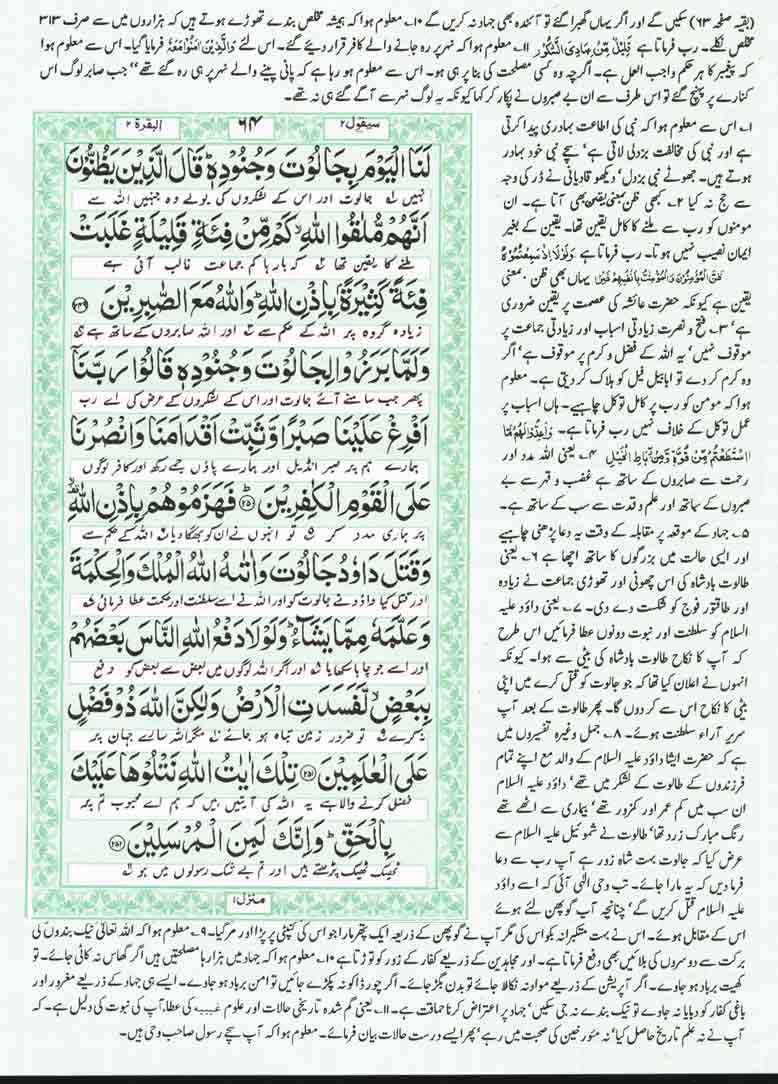 (بقیہ صفحہ ۶۳) سکیں گے اور اگر یہاں گھبرا گئے تو آئندہ بھی جہاد نہ کریں گے ۱۰۔ معلوم ہوا کہ ہمیشہ مخلص بندے تھوڑے ہوتے ہیں کہ ہزاروں میں سے صرف ۳۱۳
مخلص نکلے۔ رب فرماتا ہے قَلِیْلٌ مِّنْ عِبَادِیَ الشَّکُوْرُ ۱۱۔ معلوم ہوا کہ نہر پر رہ جانے والے کافر قرار دیئے گئے۔ اس لئے وَالَّذِیْنَ اٰمَنُوْا مَعَهٗ فرمایا گیا۔ اس سے معلوم ہوا
کہ پیغمبر کا ہر حکم واجب العمل ہے۔ اگرچہ وہ کسی مصلحت کی بنا پر ہی ہو۔ اس سے معلوم ہو رہا ہے کہ پانی پینے والے نہر پر ہی رہ گئے تھے" جب صابر لوگ اس
کنارے پر پہنچ گئے تو اس طرف سے ان بے صبروں نے پکار کر کہا کیونکہ یہ لوگ نہر سے آگے گئے ہی نہ تھے۔
سیقول ۲
۶۴
البقرة ۲
لَنَا الْیَوْمَ بِجَالُوْتَ وَجُنُوْدِهٖ ؕ قَالَ الَّذِیْنَ یَظُنُّوْنَ
نہیں جالوت اور اس کے لشکروں کی بولے وہ جنہیں اللہ سے
اَنَّهُمْ مُّلٰقُوا اللّٰهِ ۙ كَمْ مِّنْ فِئَةٍ قَلِیْلَةٍ غَلَبَتْ
ملنے کا یقین تھا کہ بارہا کم جماعت غالب آئی ہے
فِئَةً كَثِیْرَةًۢ بِاِذْنِ اللّٰهِ ؕ وَاللّٰهُ مَعَ الصّٰبِرِیْنَ ﴿۲۴۹﴾
زیادہ گروہ پر اللہ کے حکم سے اور اللہ صابروں کے ساتھ ہے
وَلَمَّا بَرَزُوْا لِجَالُوْتَ وَجُنُوْدِهٖ قَالُوْا رَبَّنَاۤ
پھر جب سامنے آئے جالوت اور اس کے لشکروں کے عرض کی اے رب
اَفْرِغْ عَلَیْنَا صَبْرًا وَّثَبِّتْ اَقْدَامَنَا وَانْصُرْنَا
ہمارے ہم پر صبر انڈیل اور ہمارے پاؤں جمے رکھ اور کافر لوگوں
عَلَی الْقَوْمِ الْكٰفِرِیْنَ ﴿۲۵۰﴾ فَهَزَمُوْهُمْ بِاِذْنِ اللّٰهِ ۙ
پر ہماری مدد کر تو انہوں نے ان کو بھگا دیا اللہ کے حکم سے
وَقَتَلَ دَاوٗدُ جَالُوْتَ وَاٰتٰىهُ اللّٰهُ الْمُلْكَ وَالْحِكْمَةَ
اور قتل کیا داؤد نے جالوت کو اور اللہ نے اسے سلطنت اور حکمت عطا فرمائی
وَعَلَّمَهٗ مِمَّا یَشَآءُ ؕ وَلَوْلَا دَفْعُ اللّٰهِ النَّاسَ بَعْضَهُمْ
اور اسے جو چاہا سکھایا اور اگر اللہ لوگوں میں بعض سے بعض کو دفع
بِبَعْضٍ ۙ لَّفَسَدَتِ الْاَرْضُ وَلٰكِنَّ اللّٰهَ ذُوْ فَضْلٍ
نہ کرے تو ضرور زمین تباہ ہو جائے مگر اللہ سارے جہان پر
عَلَی الْعٰلَمِیْنَ ﴿۲۵۱﴾ تِلْكَ اٰیٰتُ اللّٰهِ نَتْلُوْهَا عَلَیْكَ
فضل کرنے والا ہے یہ اللہ کی آیتیں ہیں کہ ہم اے محبوب تم پر
بِالْحَقِّ ؕ وَاِنَّكَ لَمِنَ الْمُرْسَلِیْنَ ﴿۲۵۲﴾
ٹھیک ٹھیک پڑھتے ہیں اور تم بے شک رسولوں میں ہو
منزل ۱
۱۔ اس سے معلوم ہوا کہ نبی کی اطاعت بہادری پیدا کرتی
ہے اور نبی کی مخالفت بزدلی لاتی ہے' سچے نبی خود بہادر
ہوتے ہیں۔ جھوٹے نبی بزدل' دیکھو قادیانی نے ڈر کی وجہ
سے حج نہ کیا ۲۔ کبھی ظن، معنی یقین بھی آتا ہے۔ ان
مومنوں کو رب سے ملنے کا کامل یقین تھا۔ یقین کے بغیر
ایمان نصیب نہیں ہوتا۔ رب فرماتا ہے وَلَوْلَا اِذْ سَمِعْتُمُوْهُ
ظَنَّ الْمُؤْمِنُوْنَ وَالْمُؤْمِنٰتُ بِاَنْفُسِهِمْ خَیْرًا یہاں بھی ظن، بمعنی
یقین ہے کیونکہ حضرت عائشہ کی عصمت پر یقین ضروری
ہے' ۳۔ فتح و نصرت زیادتی اسباب اور زیادتی جماعت پر
موقوف نہیں' یہ اللہ کے فضل و کرم پر موقوف ہے' اگر
وہ کرم کر دے تو ابابیل فیل کو ہلاک کر دیتی ہے۔ معلوم
ہوا کہ مومن کو رب پر کامل توکل چاہیے۔ ہاں اسباب پر
عمل توکل کے خلاف نہیں رب فرماتا ہے۔ وَاَعِدُّوْا لَهُمْ مَّا
اسْتَطَعْتُمْ مِّنْ قُوَّةٍ وَّمِنْ رِّبَاطِ الْخَیْلِ ۴۔ یعنی اللہ مدد اور
رحمت سے صابروں کے ساتھ ہے غضب و قہر سے بے
صبروں کے ساتھ اور علم و قدرت سے سب کے ساتھ ہے۔
۵۔ جہاد کے موقعہ پر مقابلہ کے وقت یہ دعا پڑھنی چاہیے
اور ایسی حالت میں بزرگوں کا ساتھ اچھا ہے ۶۔ یعنی
طالوت بادشاہ کی اس چھوٹی اور تھوڑی جماعت نے زیادہ
اور طاقتور فوج کو شکست دے دی۔ ۷۔ یعنی داؤد علیہ
السلام کو سلطنت اور نبوت دونوں عطا فرمائیں اس طرح
کہ آپ کا نکاح طالوت بادشاہ کی بیٹی سے ہوا۔ کیونکہ
انہوں نے اعلان کیا تھا کہ جو جالوت کو قتل کرے میں اپنی
بیٹی کا نکاح اس سے کر دوں گا۔ پھر طالوت کے بعد آپ
سریر آراء سلطنت ہوئے۔ ۸۔ جمل وغیرہ تفسیروں میں
ہے کہ حضرت ایشا داؤد علیہ السلام کے والد مع اپنے تمام
فرزندوں کے طالوت کے لشکر میں تھے' داؤد علیہ السلام
ان سب میں کم عمر اور کمزور تھے' بیماری سے اٹھے تھے
رنگ مبارک زرد تھا' طالوت نے شموئیل علیہ السلام سے
عرض کیا کہ جالوت بہت شاہ زور ہے آپ رب سے دعا
فرما دیں کہ یہ مارا جائے۔ تب وحی الٰہی آئی کہ اسے داؤد
علیہ السلام قتل کریں گے' چنانچہ آپ گوپھن لئے ہوئے
اس کے مقابل ہوئے۔ اس نے بہت متکبرانہ بکواس کی مگر آپ نے گوپھن کے ذریعہ ایک پتھر مارا جو اس کی کنپٹی پر پڑا اور مر گیا۔ ۹۔ معلوم ہوا کہ اللہ تعالیٰ نیک بندوں کی
برکت سے دوسروں کی بلائیں بھی دفع فرماتا ہے۔ اور مجاہدین کے ذریعے کفار کے زور کو توڑتا ہے ۱۰۔ معلوم ہوا کہ جہاد میں ہزارہا مصلحتیں ہیں اگر گھاس نہ کاٹی جائے۔ تو
کھیت برباد ہو جاوے۔ اگر آپریشن کے ذریعے مواد نہ نکالا جائے تو بدن بگڑ جائے۔ اگر چور ڈاکو نہ پکڑے جائیں تو امن برباد ہو جاوے۔ ایسے ہی جہاد کے ذریعے مغرور اور
باغی کفار کو دبایا نہ جاوے تو نیک بندے نہ جی سکیں' جہاد پر اعتراض کرنا حماقت ہے۔ ۱۱۔ یعنی گم شدہ تاریخی حالات اور علوم غیبیہ کی عطا' آپ کی نبوت کی دلیل ہے۔ کہ
آپ نے نہ علم تاریخ حاصل کیا' نہ مؤرخین کی صحبت میں رہے' پھر ایسے درست حالات بیان فرمائے۔ معلوم ہوا کہ آپ سچے رسول صاحب وحی ہیں۔